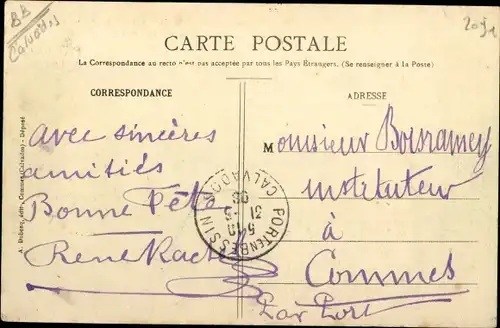 BB
Calvados
2091
CARTE POSTALE
La Correspondance au recto n'est pas acceptée par tous les Pays Etrangers. (Se renseigner à la Poste)
CORRESPONDANCE
avec sincères
amitiés
Bonne Fête
René
A. Dubosq, édit., Commes (Calvados) - Déposé
PORT EN BESSIN CALVADOS
5-10
31-5
08
ADRESSE
Monsieur
instituteur
à
Commes
Par Port